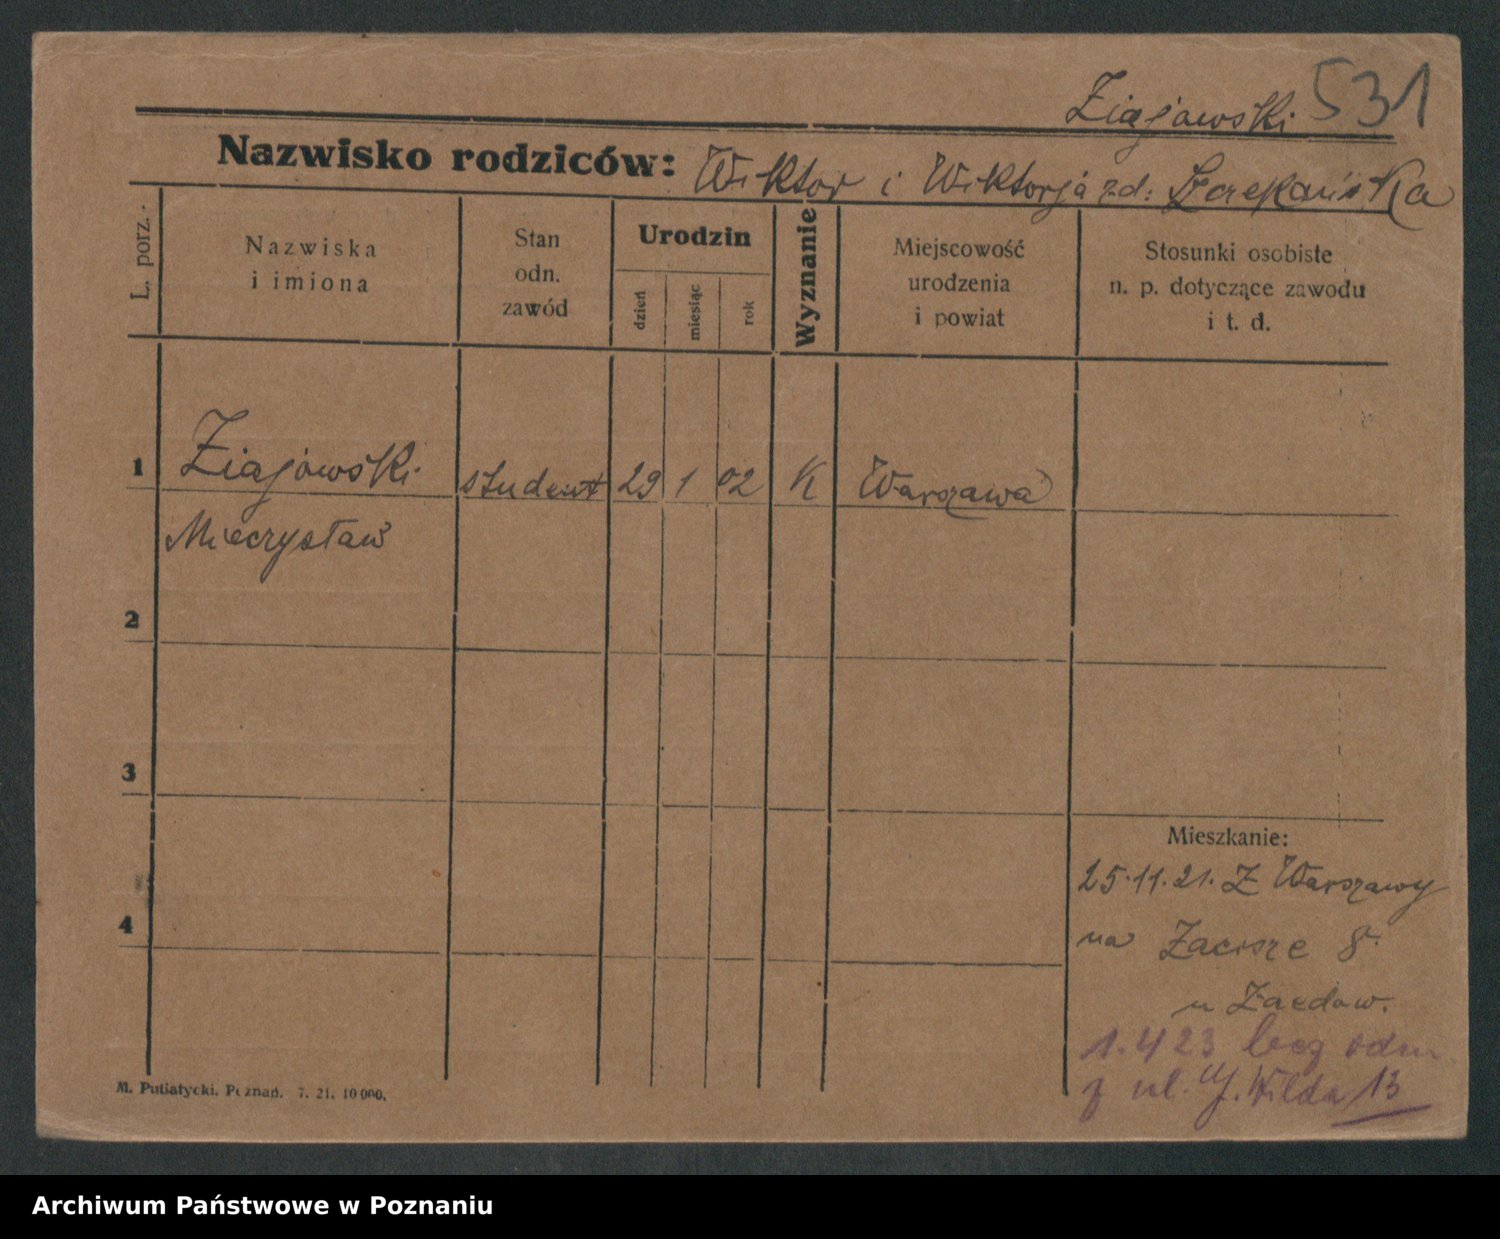 Ziajowski 531
Nazwisko rodziców: Wiktor i Wiktorja zd:
L. porz.
Nazwiska
i imiona
Stan
odn.
zawód
Urodzin
dzień
miesiąc
rok
Wyznanie
Miejscowość
urodzenia
i powiat
Stosunki osobiste
n. p. dotyczące zawodu
i t. d.
1 Ziajowski student 29 1 02 K Warszawa
Mieczysław
2
3
4
Mieszkanie:
25.11.21. Z Warszawy
na Zacisze 8.
u
1.4 23 bez odm
z ul. G. Wilda 13
M. Putiatycki. Poznań. 7. 21. 10 000.
Archiwum Państwowe w Poznaniu